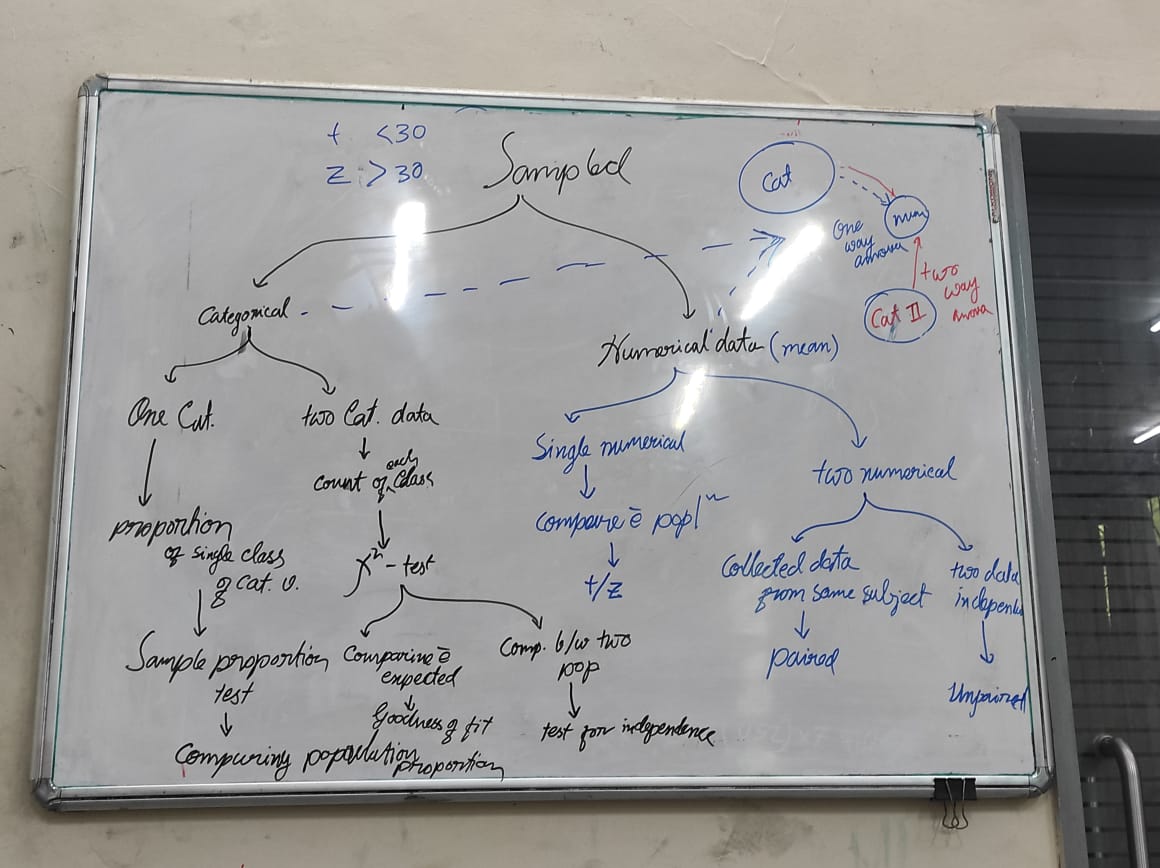 t <30
z >30
Sampled
Cat
num
One
way
annova
two
way
Cat II
Categorical
Numerical data (mean)
One Cat.
two Cat. data
count of each class
χ² - test
proportion
of single class
of Cat. v.
Sample proportion
test
Comparing population
proportion
Comparing c̄
expected
Goodness of fit
Comp. b/w two
pop
test for independence
Single numerical
compare c̄ poplⁿ
t/z
two numerical
Collected data
from same subject
paired
two data
Unpaired